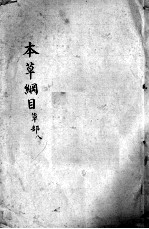 本草綱目草部八